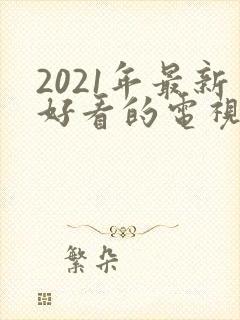 2021年最新
好看的電視
繁朵